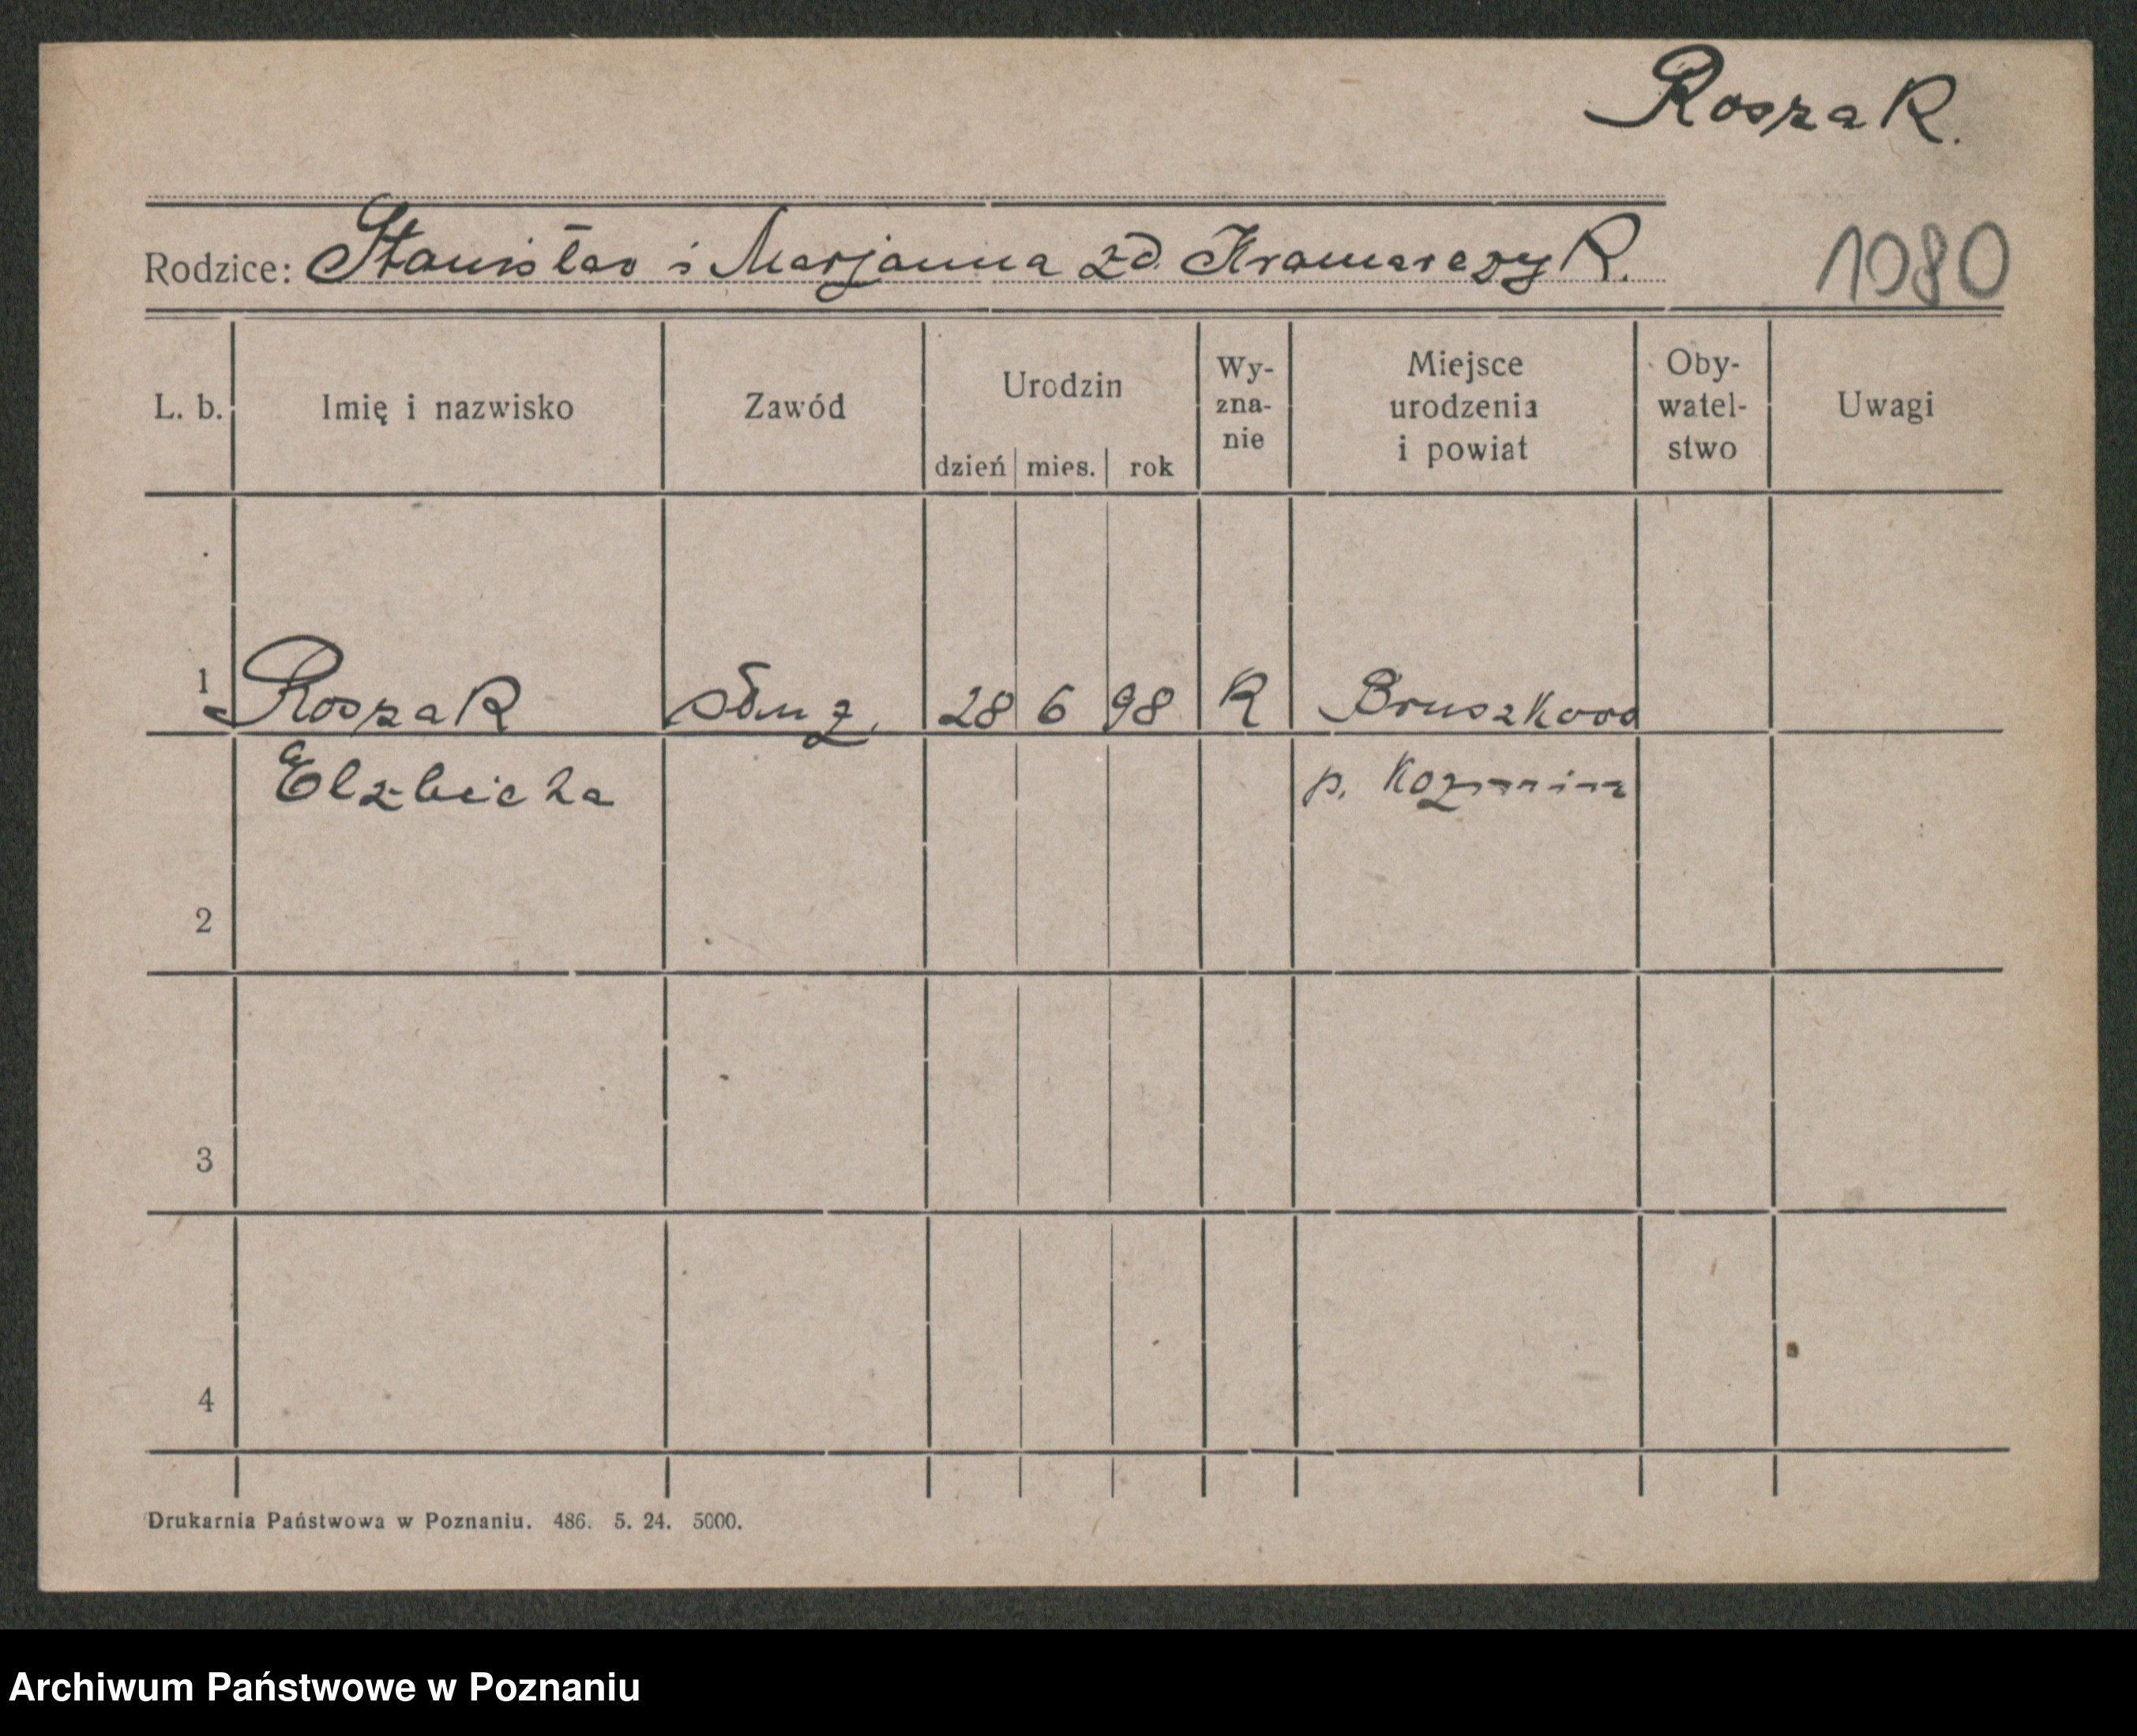 Roszak.
Rodzice: Stanisław i Marjanna zd. Kramarczyk.
1080
L. b. Imię i nazwisko Zawód Urodzin dzień mies. rok Wy-zna-nie Miejsce urodzenia i powiat Oby-watel-stwo Uwagi
1 Roszak służ. 28 6 98 K
Elżbieta p. Kozmin
2
3
4
Drukarnia Państwowa w Poznaniu. 486. 5. 24. 5000.
Archiwum Państwowe w Poznaniu